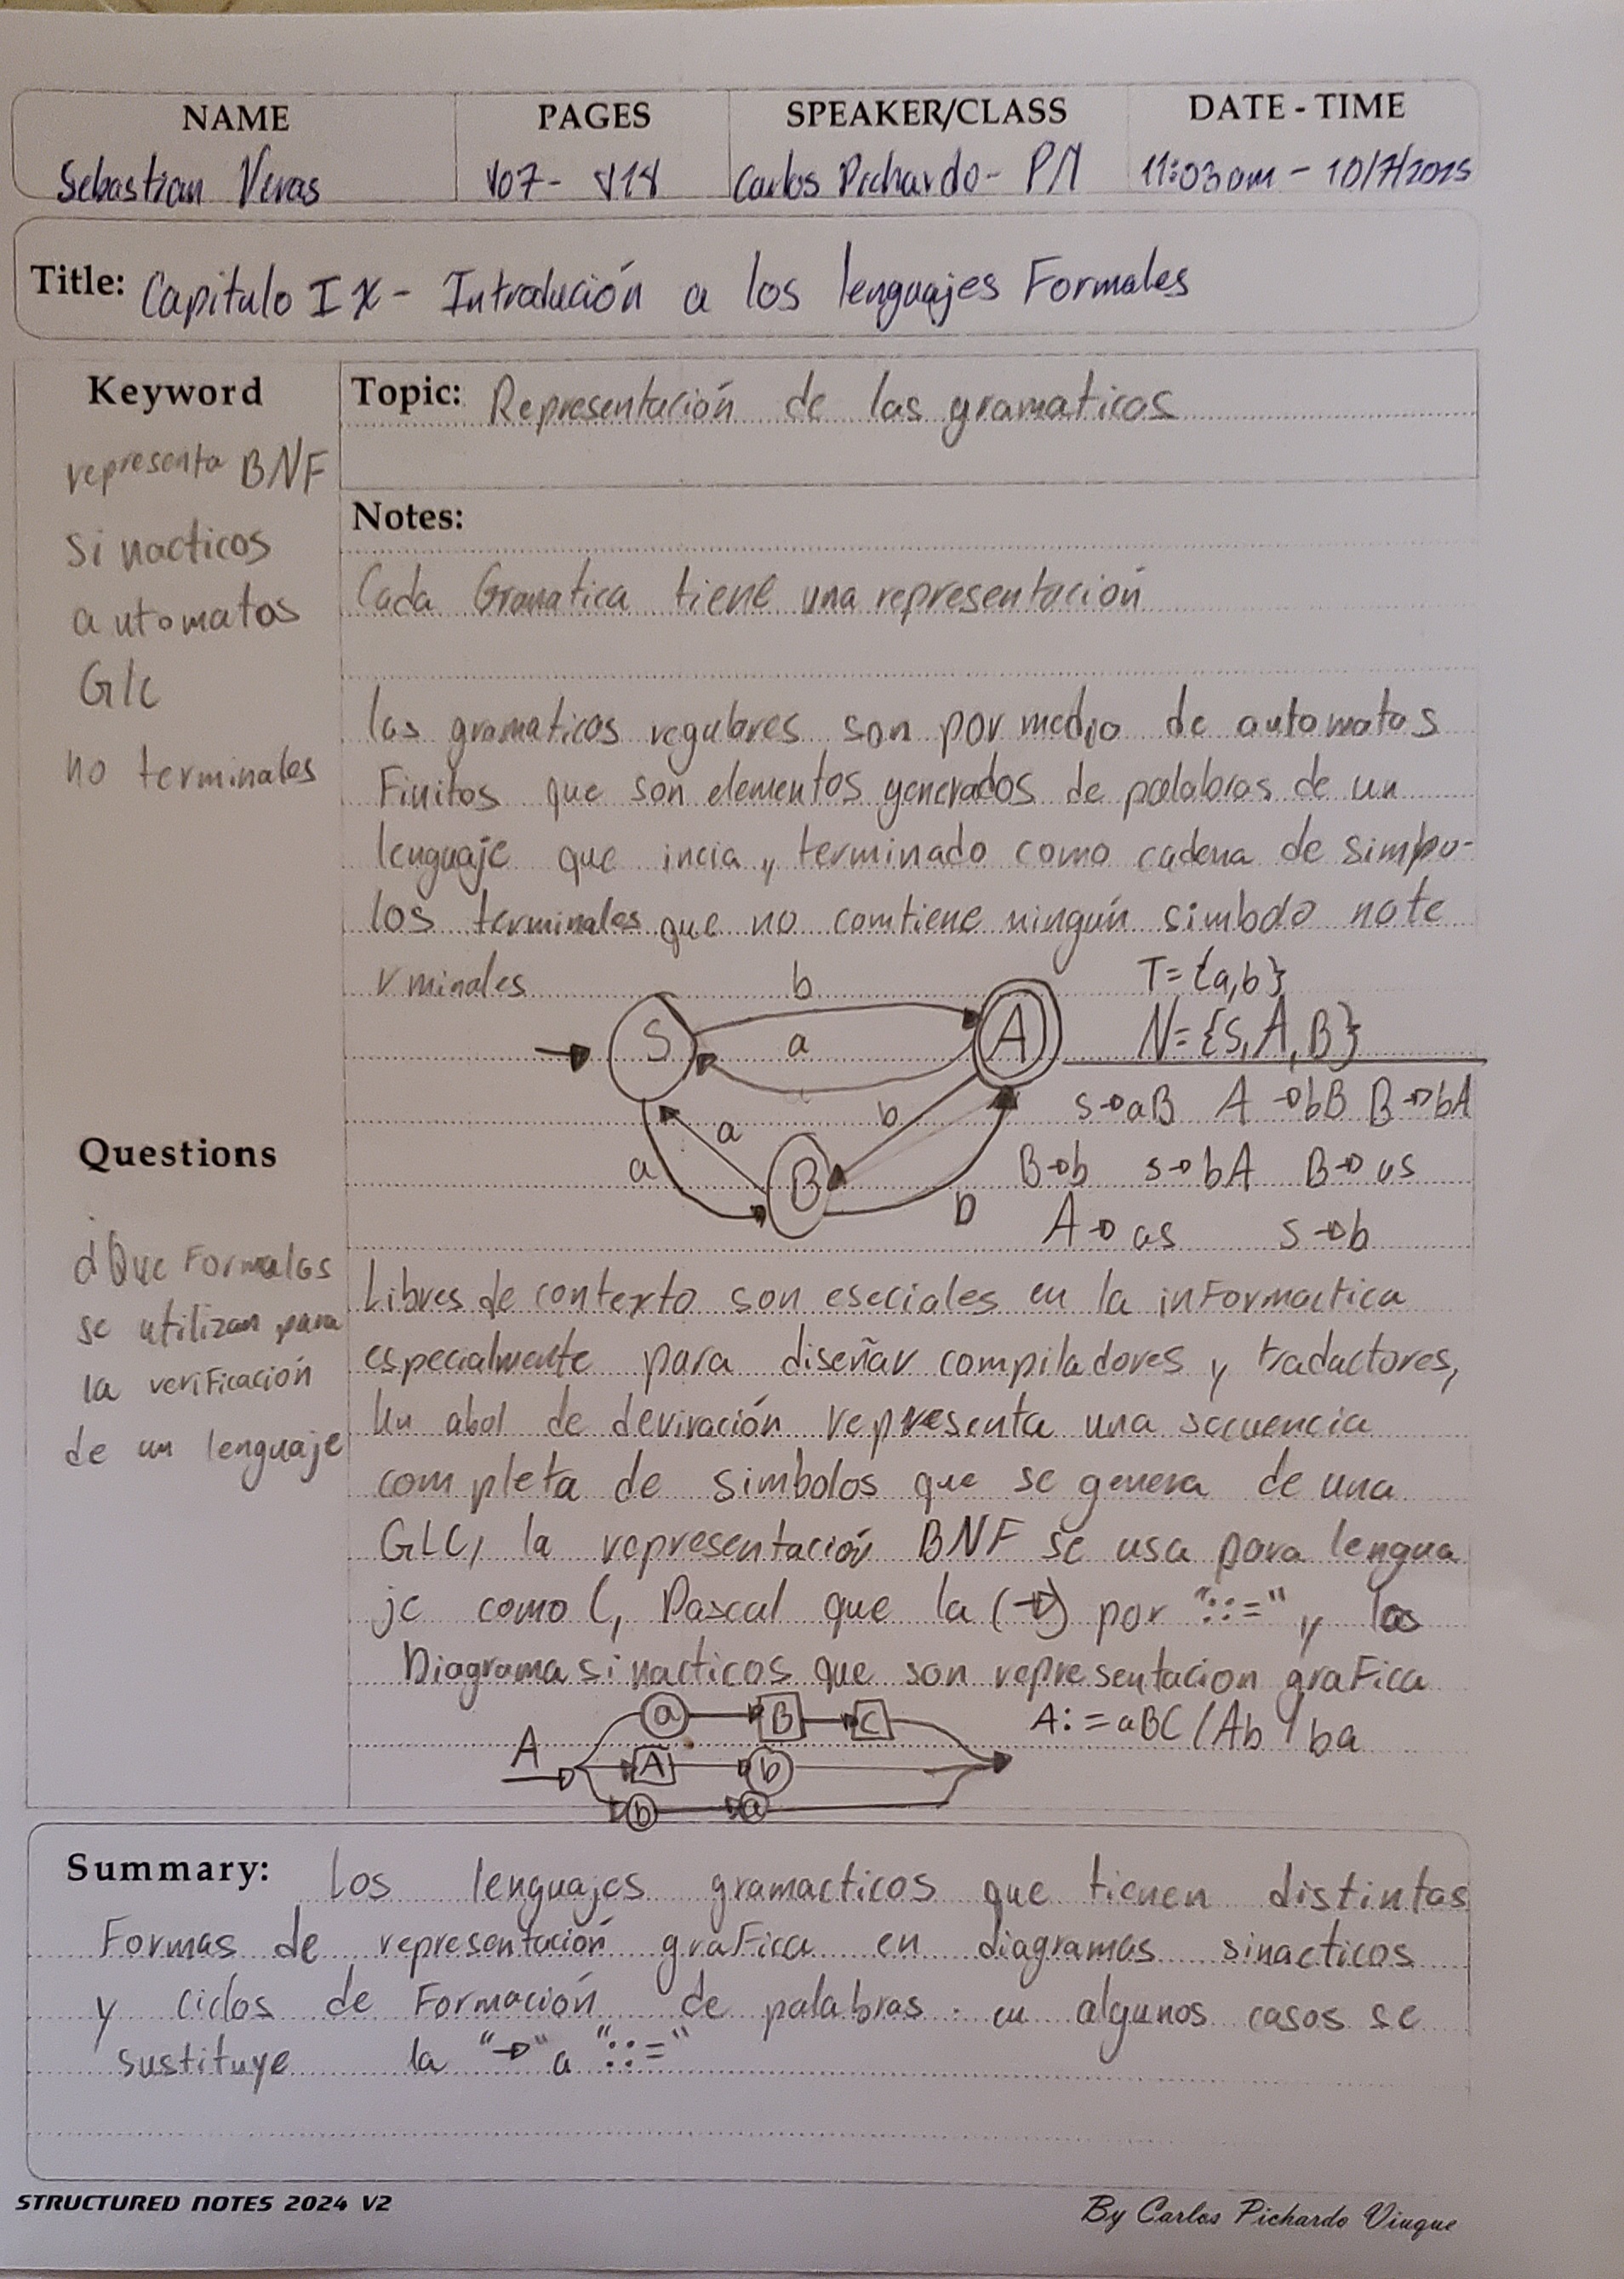 NAME PAGES SPEAKER/CLASS DATE - TIME
Sebastian Veras 107- 118 Carlos Pichardo- PM 11:03am - 10/7/2025
Title: Capitulo IX - Introdución a los lenguajes Formales
Keyword
representa BNF
sinacticos
automatas
Glc
no terminales
Topic: Representación de las gramaticas
Notes:
Cada Gramatica tiene una representación
las gramaticas regulares son por medio de automatas
Finitos que son elementos generados de palabras de un
lenguaje que incia y terminado como cadena de simbo-
los terminales que no comtiene ningún simbolo note
rminales
b
T={a,b}
S
a
A
N={S,A,B}
s→aB A→bB B→bA
a
b
a
B
B→b s→bA B→as
b
A→as s→b
Questions
¿Que Formalas
se utilizan para
la verificación
de un lenguaje
Libres de contexto son eseciales en la informactica
especialmente para diseñar compiladores y traductores,
Un abol de deviración representa una secuencia
completa de simbolos que se genera de una
GLC, la representación BNF se usa para lengua
je como C, Pascal que la (→) por "::=" y los
Diagrama sinacticos que son representacion grafica
a B C
A:=aBC/Ab/ba
A
A b
b a
Summary: Los lenguajes gramacticos que tienen distintas
Formas de representación grafica en diagramas sinacticos
y ciclos de Formación de palabras. en algunos casos se
sustituye la "→" a "::="
STRUCTURED NOTES 2024 V2
By Carlos Pichardo Viuque